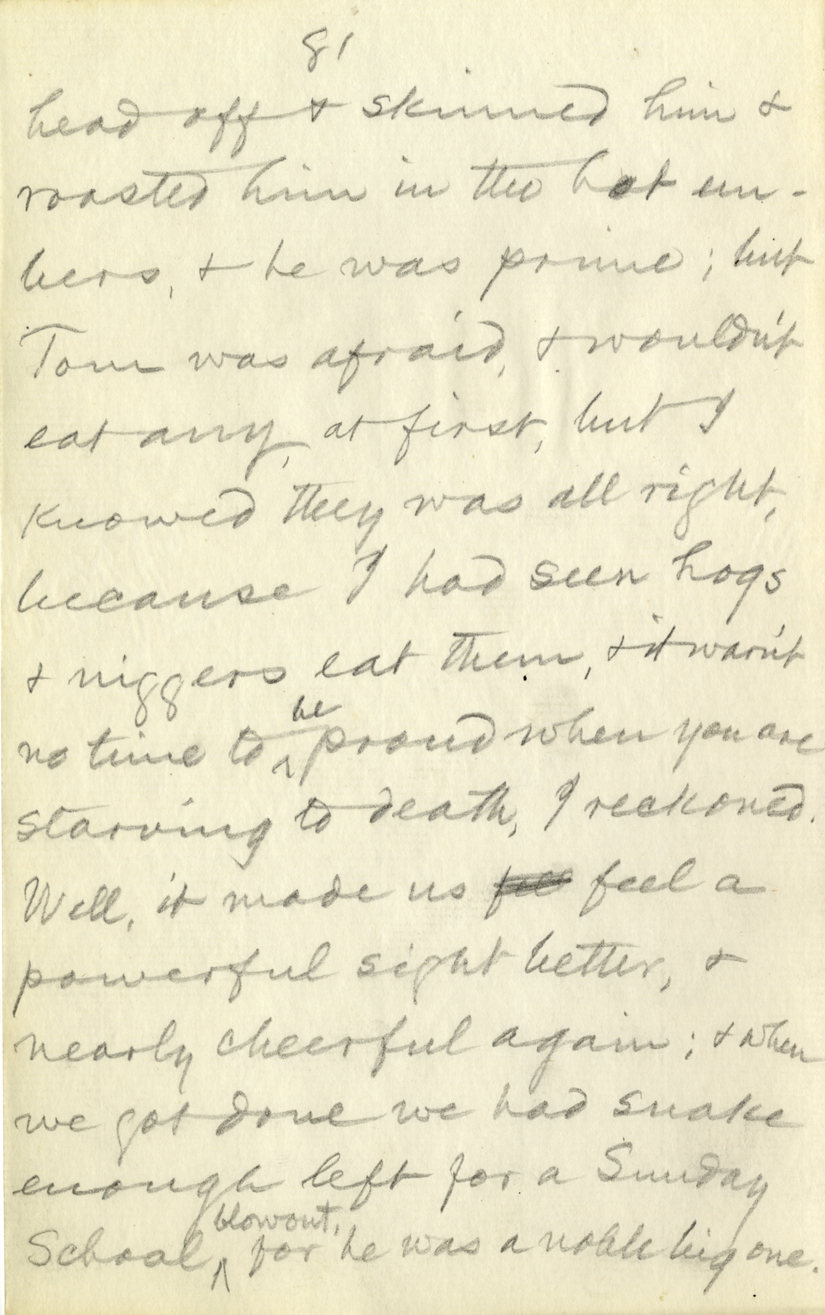 81
head off & skinned him & 
roasted him in the hot em-
bers, & he was prime; but
Tom was afraid, & wouldn't
eat any, at first, but I
knowed they was all right,
because I had seen hogs
& niggers eat them, & it warn't
no time to be proud when you are
starving to death, I reckoned.
Well, it made us feel a
powerful sight better, &
nearly cheerful again; & when
we got done we had snake
enough left for a Sunday
School blowout, for he was a noble big one.